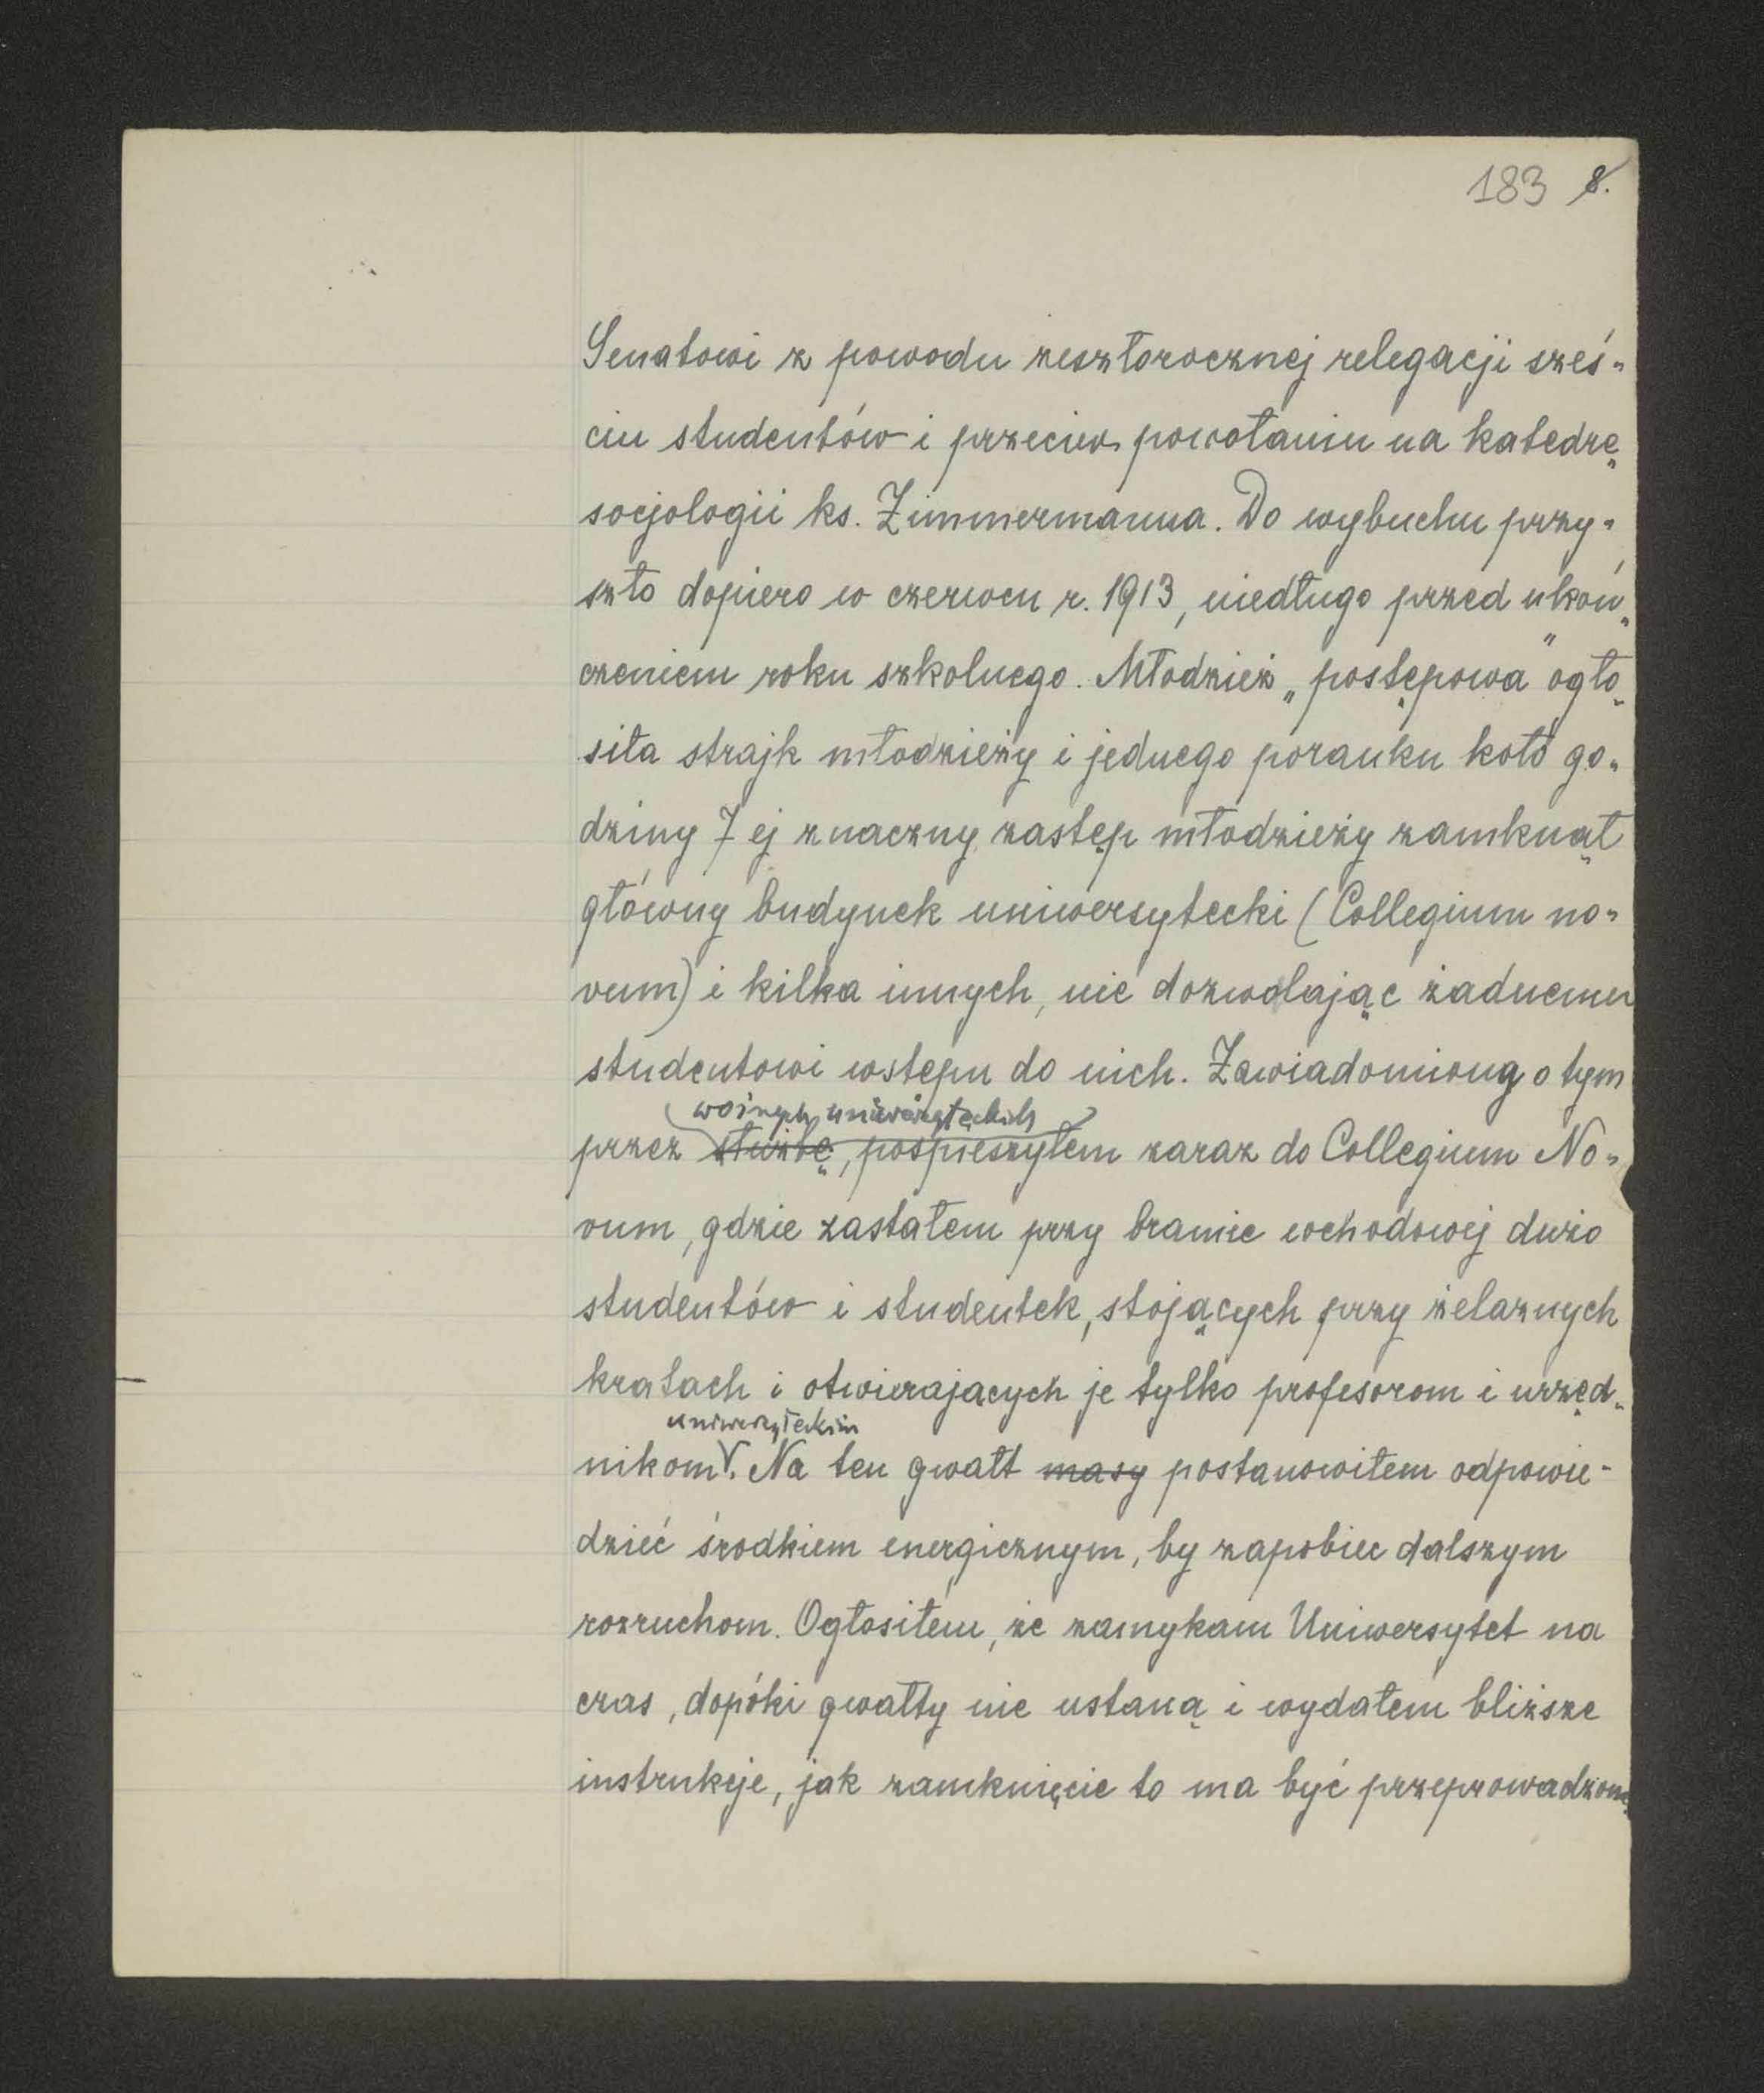 183 8.
Senatowi z powodu zeszłorocznej relegacji sześ-
ciu studentów i przeciw powołaniu na katedrę
socjologii ks. Zimmermanna. Do wybuchu przy-
szło dopiero w czerwcu r. 1913, niedługo przed ukoń-
czeniem roku szkolnego. Młodzież „postępowa" ogło-
siła strajk młodzieży i jednego poranku koło go-
dziny 7 ej znaczny zastęp młodzieży zamknął
główny budynek uniwersytecki (Collegium no-
vum) i kilka innych, nie dozwalając żadnemu
studentowi wstępu do nich. Zawiadomiony o tym
woźnych uniwersyteckich
przez służbę, pospieszyłem zaraz do Collegium No-
vum, gdzie zastałem przy bramie wchodowej dużo
studentów i studentek, stojących przy żelaznych
kratach i otwierających je tylko profesorom i urzęd-
uniwersyteckim
nikom. Na ten gwałt masy postanowiłem odpowie-
dzieć środkiem energicznym, by zapobiec dalszym
rozruchom. Ogłosiłem, że zamykam Uniwersytet na
czas, dopóki gwałty nie ustaną i wydałem bliższe
instrukcje, jak zamknięcie to ma być przeprowadzone.